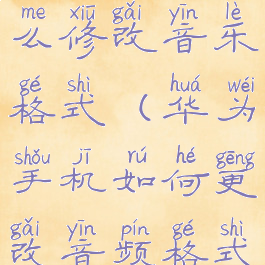 me xiū gǎi yīn lè
么修改音乐
gé shì huá wéi
格式（华为
shǒu jī rú hé gēng
手机如何更
gǎi yīn pín gé shì
改音频格式